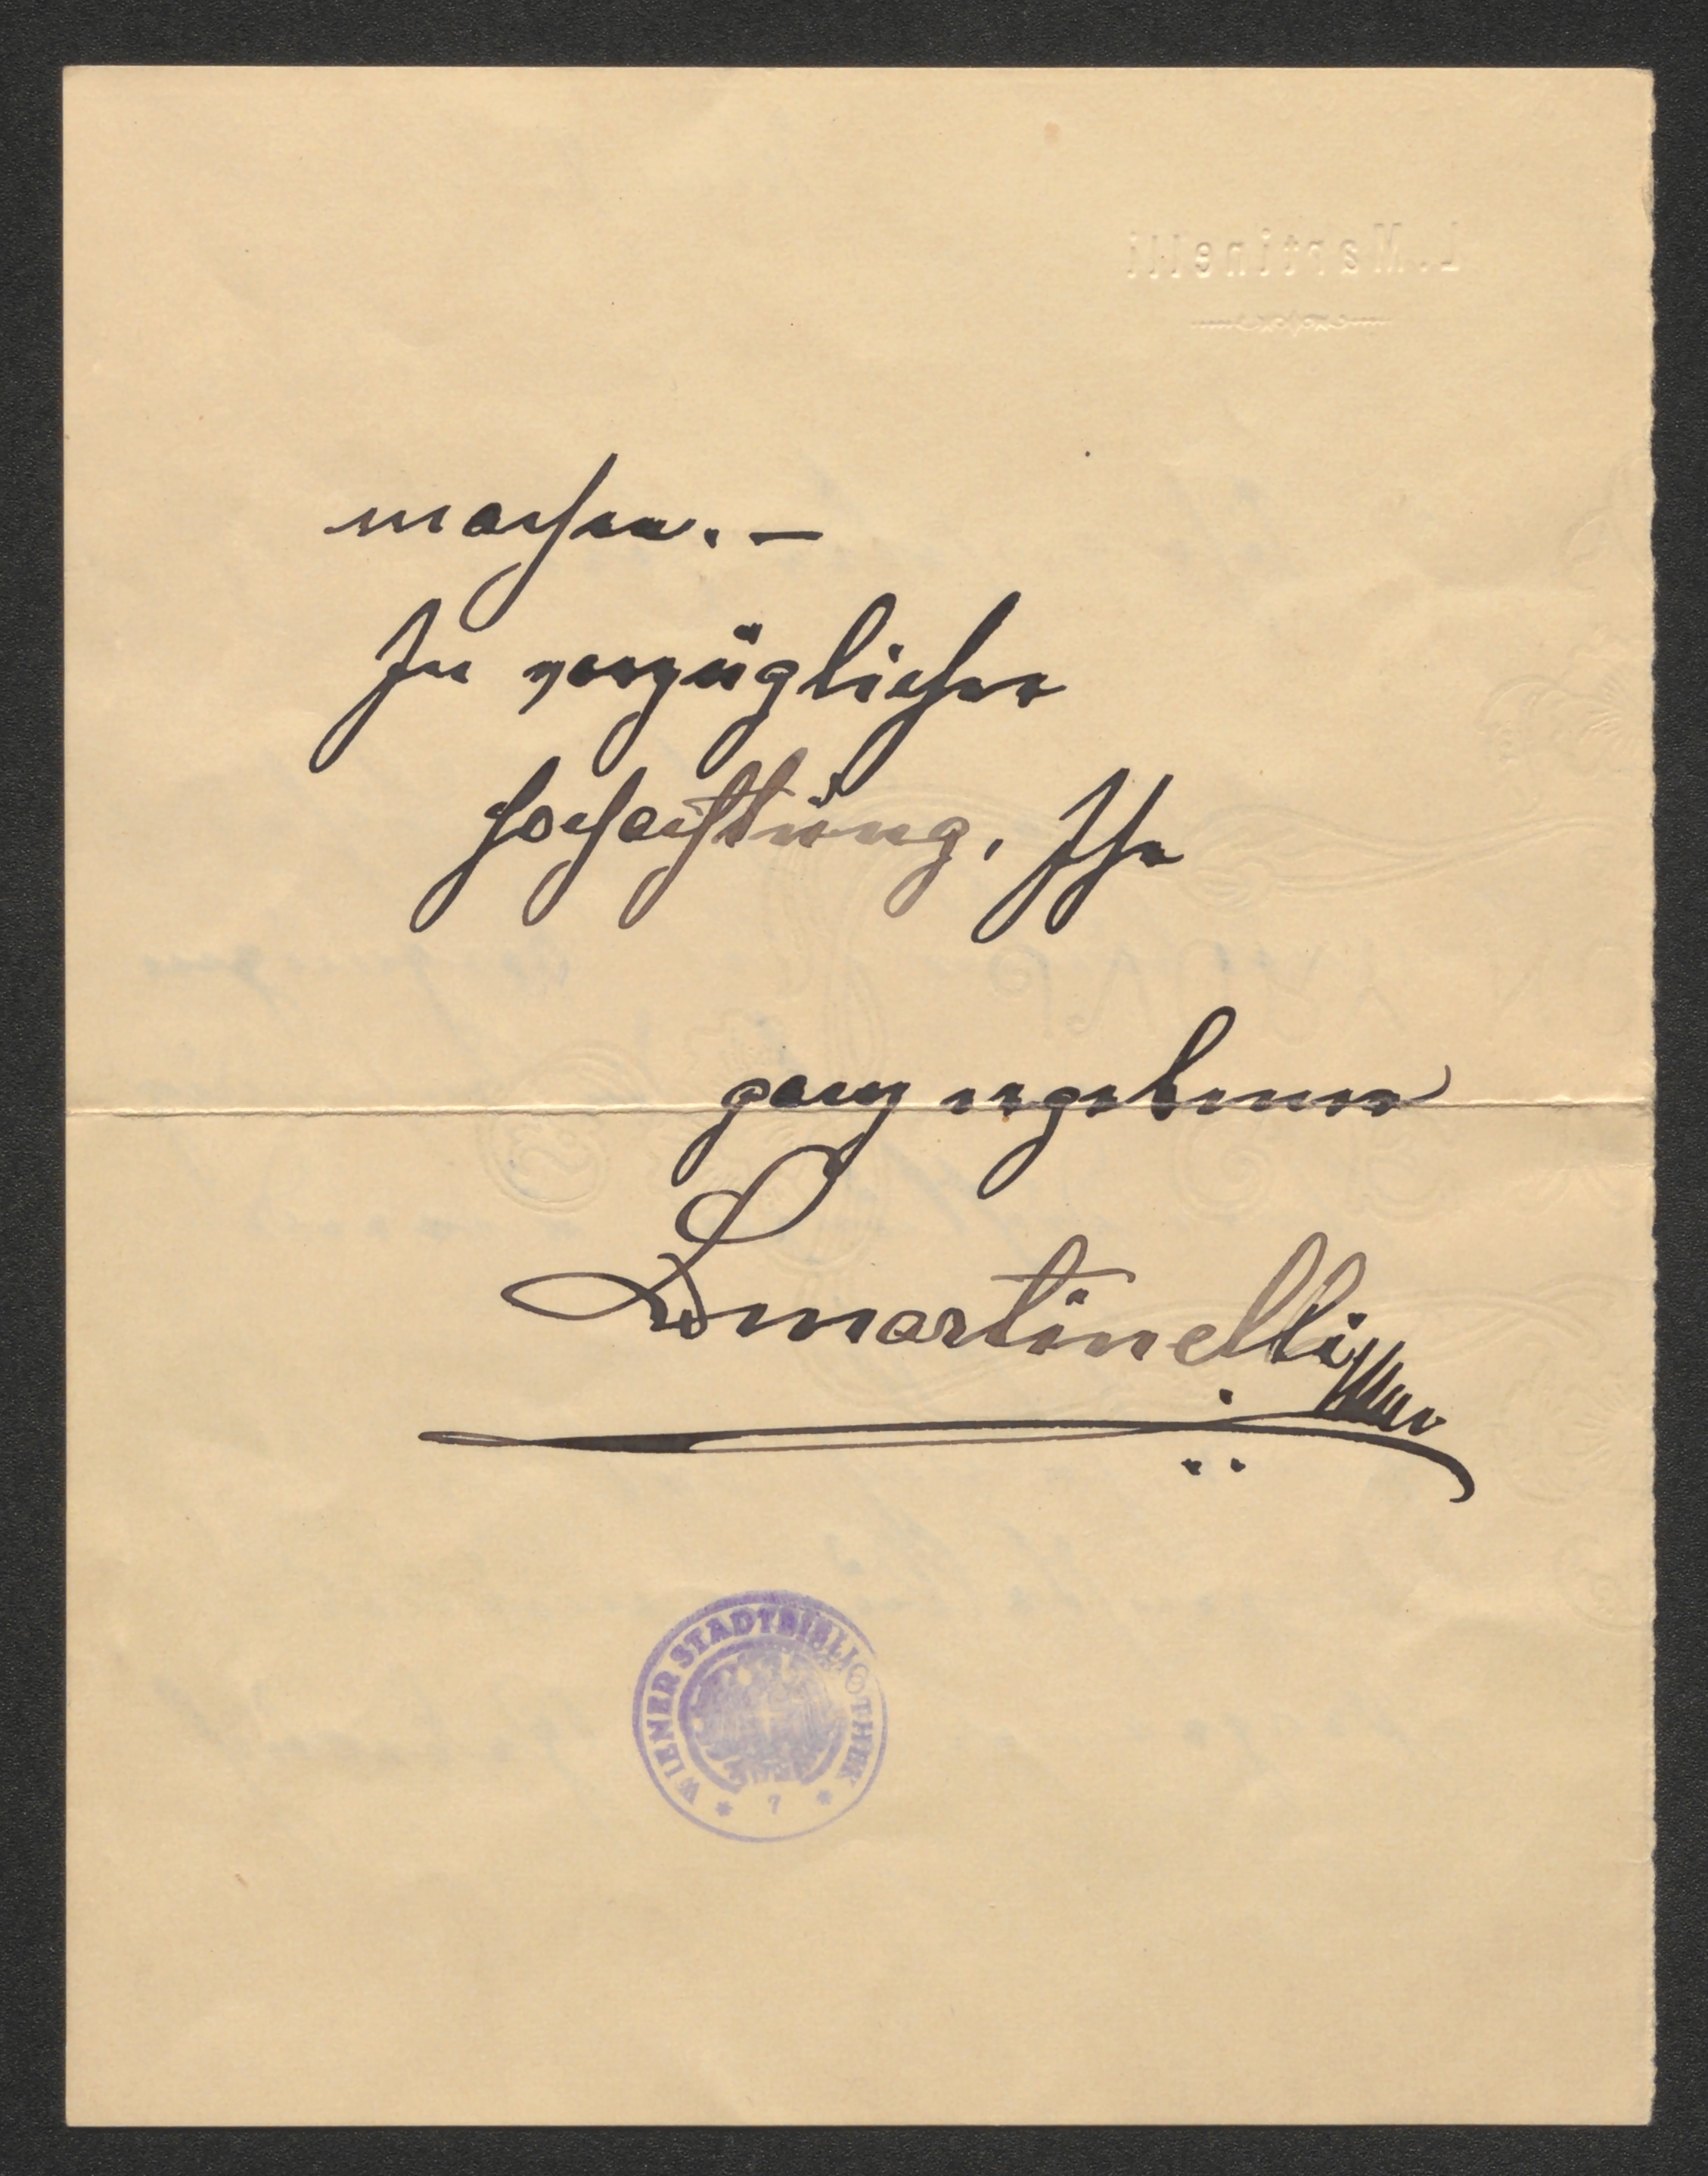 L. Martinelli
machen. –
In vorzüglicher
Hochachtung, Ihr
ganz ergebener
L Martinelli
WIENER STADTBIBLIOTHEK
* 7 *